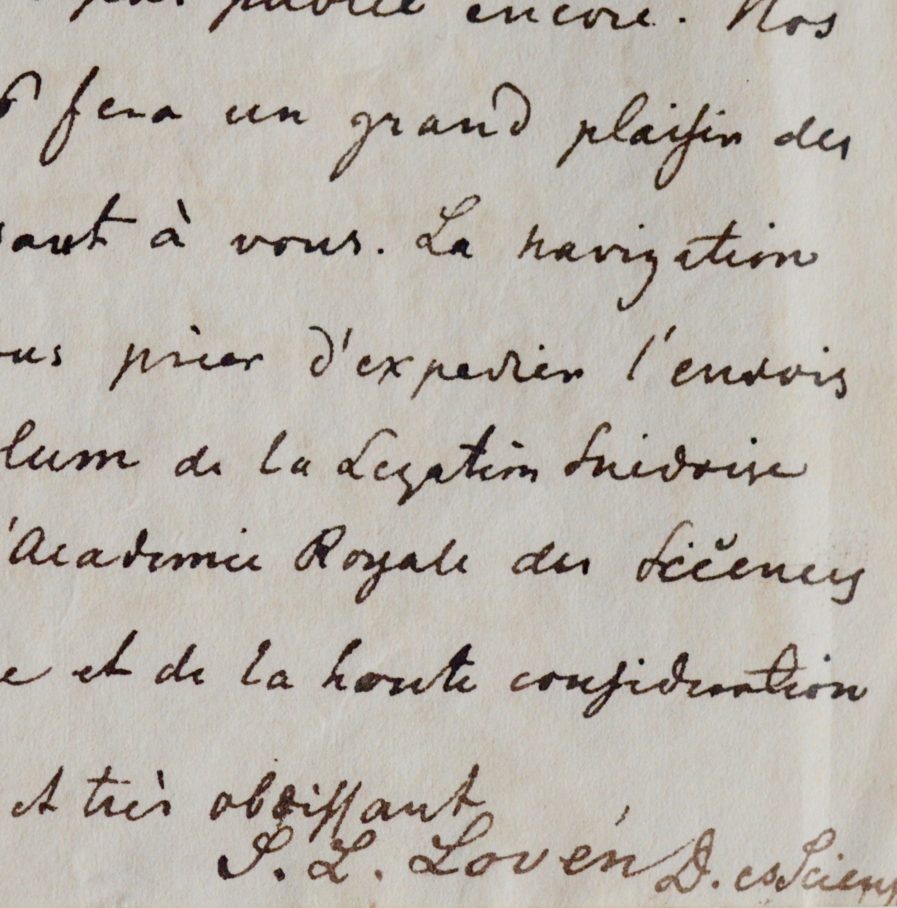 publié encore. Nos
fera un grand plaisir des
à vous. La navigation
prier d'expedier l'envois
de la Legation Suedoise
'Academie Royale des Sciences
et de la haute consideration
et très obeissant
S. L. Lovén D. es Scienc